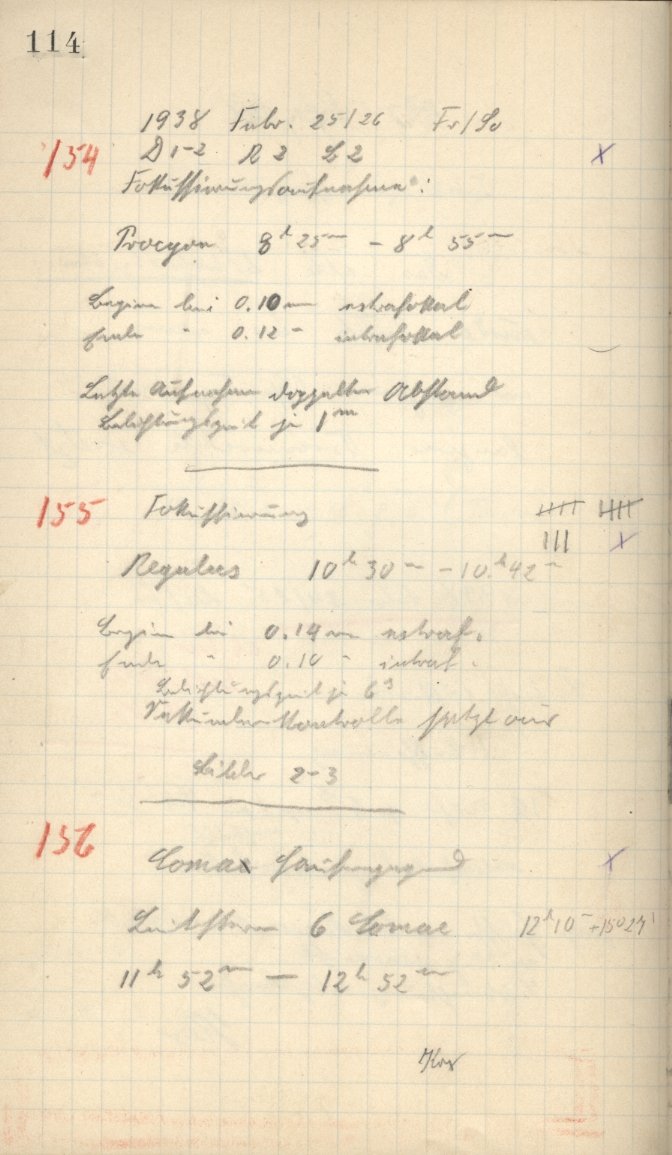 114
1938 Febr. 25/26 Fr/So
154 D 1-2 R 2 L 2 x
Fokussierungsaufnahme:
Procyon 8h 25m – 8h 55m
Beginn bei 0.10 mm extrafokal
Ende " 0.12 " intrafokal
Letzte Aufnahme doppelter Abstand
Belichtungszeit je 1m
155 Fokussierung
x
Regulus 10h 30m – 10h 42m
Beginn bei 0.14 mm extraf.
Ende " 0.10 " intraf.
Belichtungszeit je 6s
Sekundenkontrolle setzt aus
Bilder 2-3
156
Comae Haufengegend x
Leitstern 6 Comae 12h10m +15°27'
11h 52m — 12h 52m